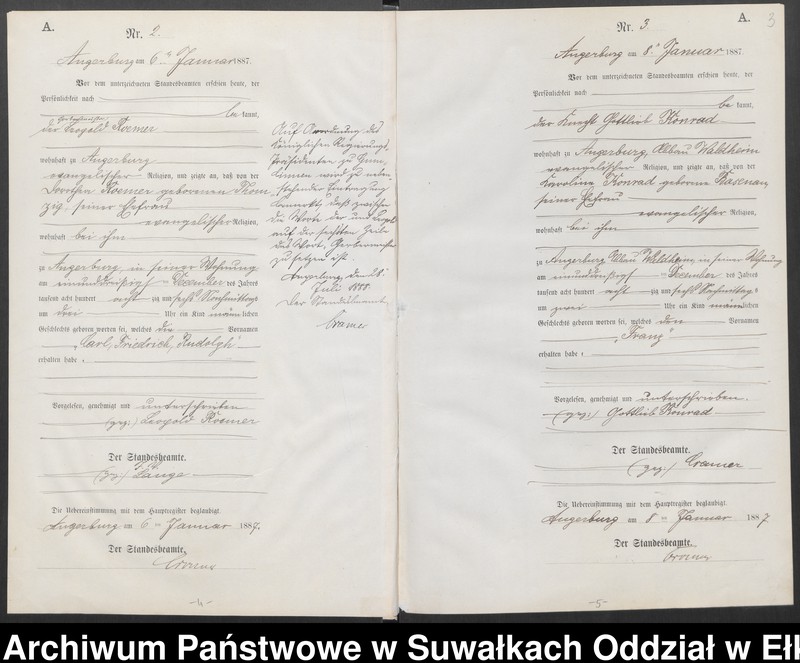 A.
Nr. 2.
Angerburg am 6ten Januar 1887.
Vor dem unterzeichneten Standesbeamten erschien heute, der
Persönlichkeit nach
be kannt,
der Leopold Kroemer
wohnhaft zu Angerburg
evangelischer Religion, und zeigte an, daß von der
Dorothea Kroemer geborenen
seiner Ehefrau
evangelischer Religion,
wohnhaft bei ihm
zu Angerburg, in seiner Wohnung
am einunddreißigsten Dezember des Jahres
tausend acht hundert acht zig und sechs Nachmittags
um drei Uhr ein Kind männlichen
Geschlechts geboren worden sei, welches den Vornamen
"Carl, Friedrich, Rudolph"
erhalten habe.
Vorgelesen, genehmigt und unterschrieben
(gez.) Leopold Kroemer
Der Standesbeamte.
(gz.) Lange
Die Uebereinstimmung mit dem Hauptregister beglaubigt.
Angerburg am 6ten Januar 1887.
Der Standesbeamte.
Cramer
-4-
Auf Anordnung des
Königlichen Regierungs-
Präsidenten zu Gum-
binnen wird zu neben
stehender Eintragung
bemerkt, daß zwischen
die Worte der und Leopold
auf der sechsten Zeile
das Wort, Gerbermeister
zu setzen ist.
Angerburg, den 28.
Juli 1888.
Der Standesbeamte
Cramer
A.
3
Nr. 3
Angerburg am 8ten Januar 1887.
Vor dem unterzeichneten Standesbeamten erschien heute, der
Persönlichkeit nach
be kannt,
der Knecht Gottlieb Konrad
wohnhaft zu Angerburg, Abbau Waldheim
evangelischer Religion, und zeigte an, daß von der
Karoline Konrad geborene
seiner Ehefrau
evangelischer Religion,
wohnhaft bei ihm
zu Angerburg Abbau Waldheim, in seiner Wohnung
am einunddreißigsten Dezember des Jahres
tausend acht hundert acht zig und sechs Nachmittags
um zwei Uhr ein Kind männlichen
Geschlechts geboren worden sei, welches den Vornamen
"Franz"
erhalten habe.
Vorgelesen, genehmigt und unterschrieben.
(gez.) Gottlieb Konrad
Der Standesbeamte.
(gez.) Cramer
Die Uebereinstimmung mit dem Hauptregister beglaubigt.
Angerburg am 8ten Januar 1887
Der Standesbeamte.
Cramer
-5-
Archiwum Państwowe w Suwałkach Oddział w Ełk